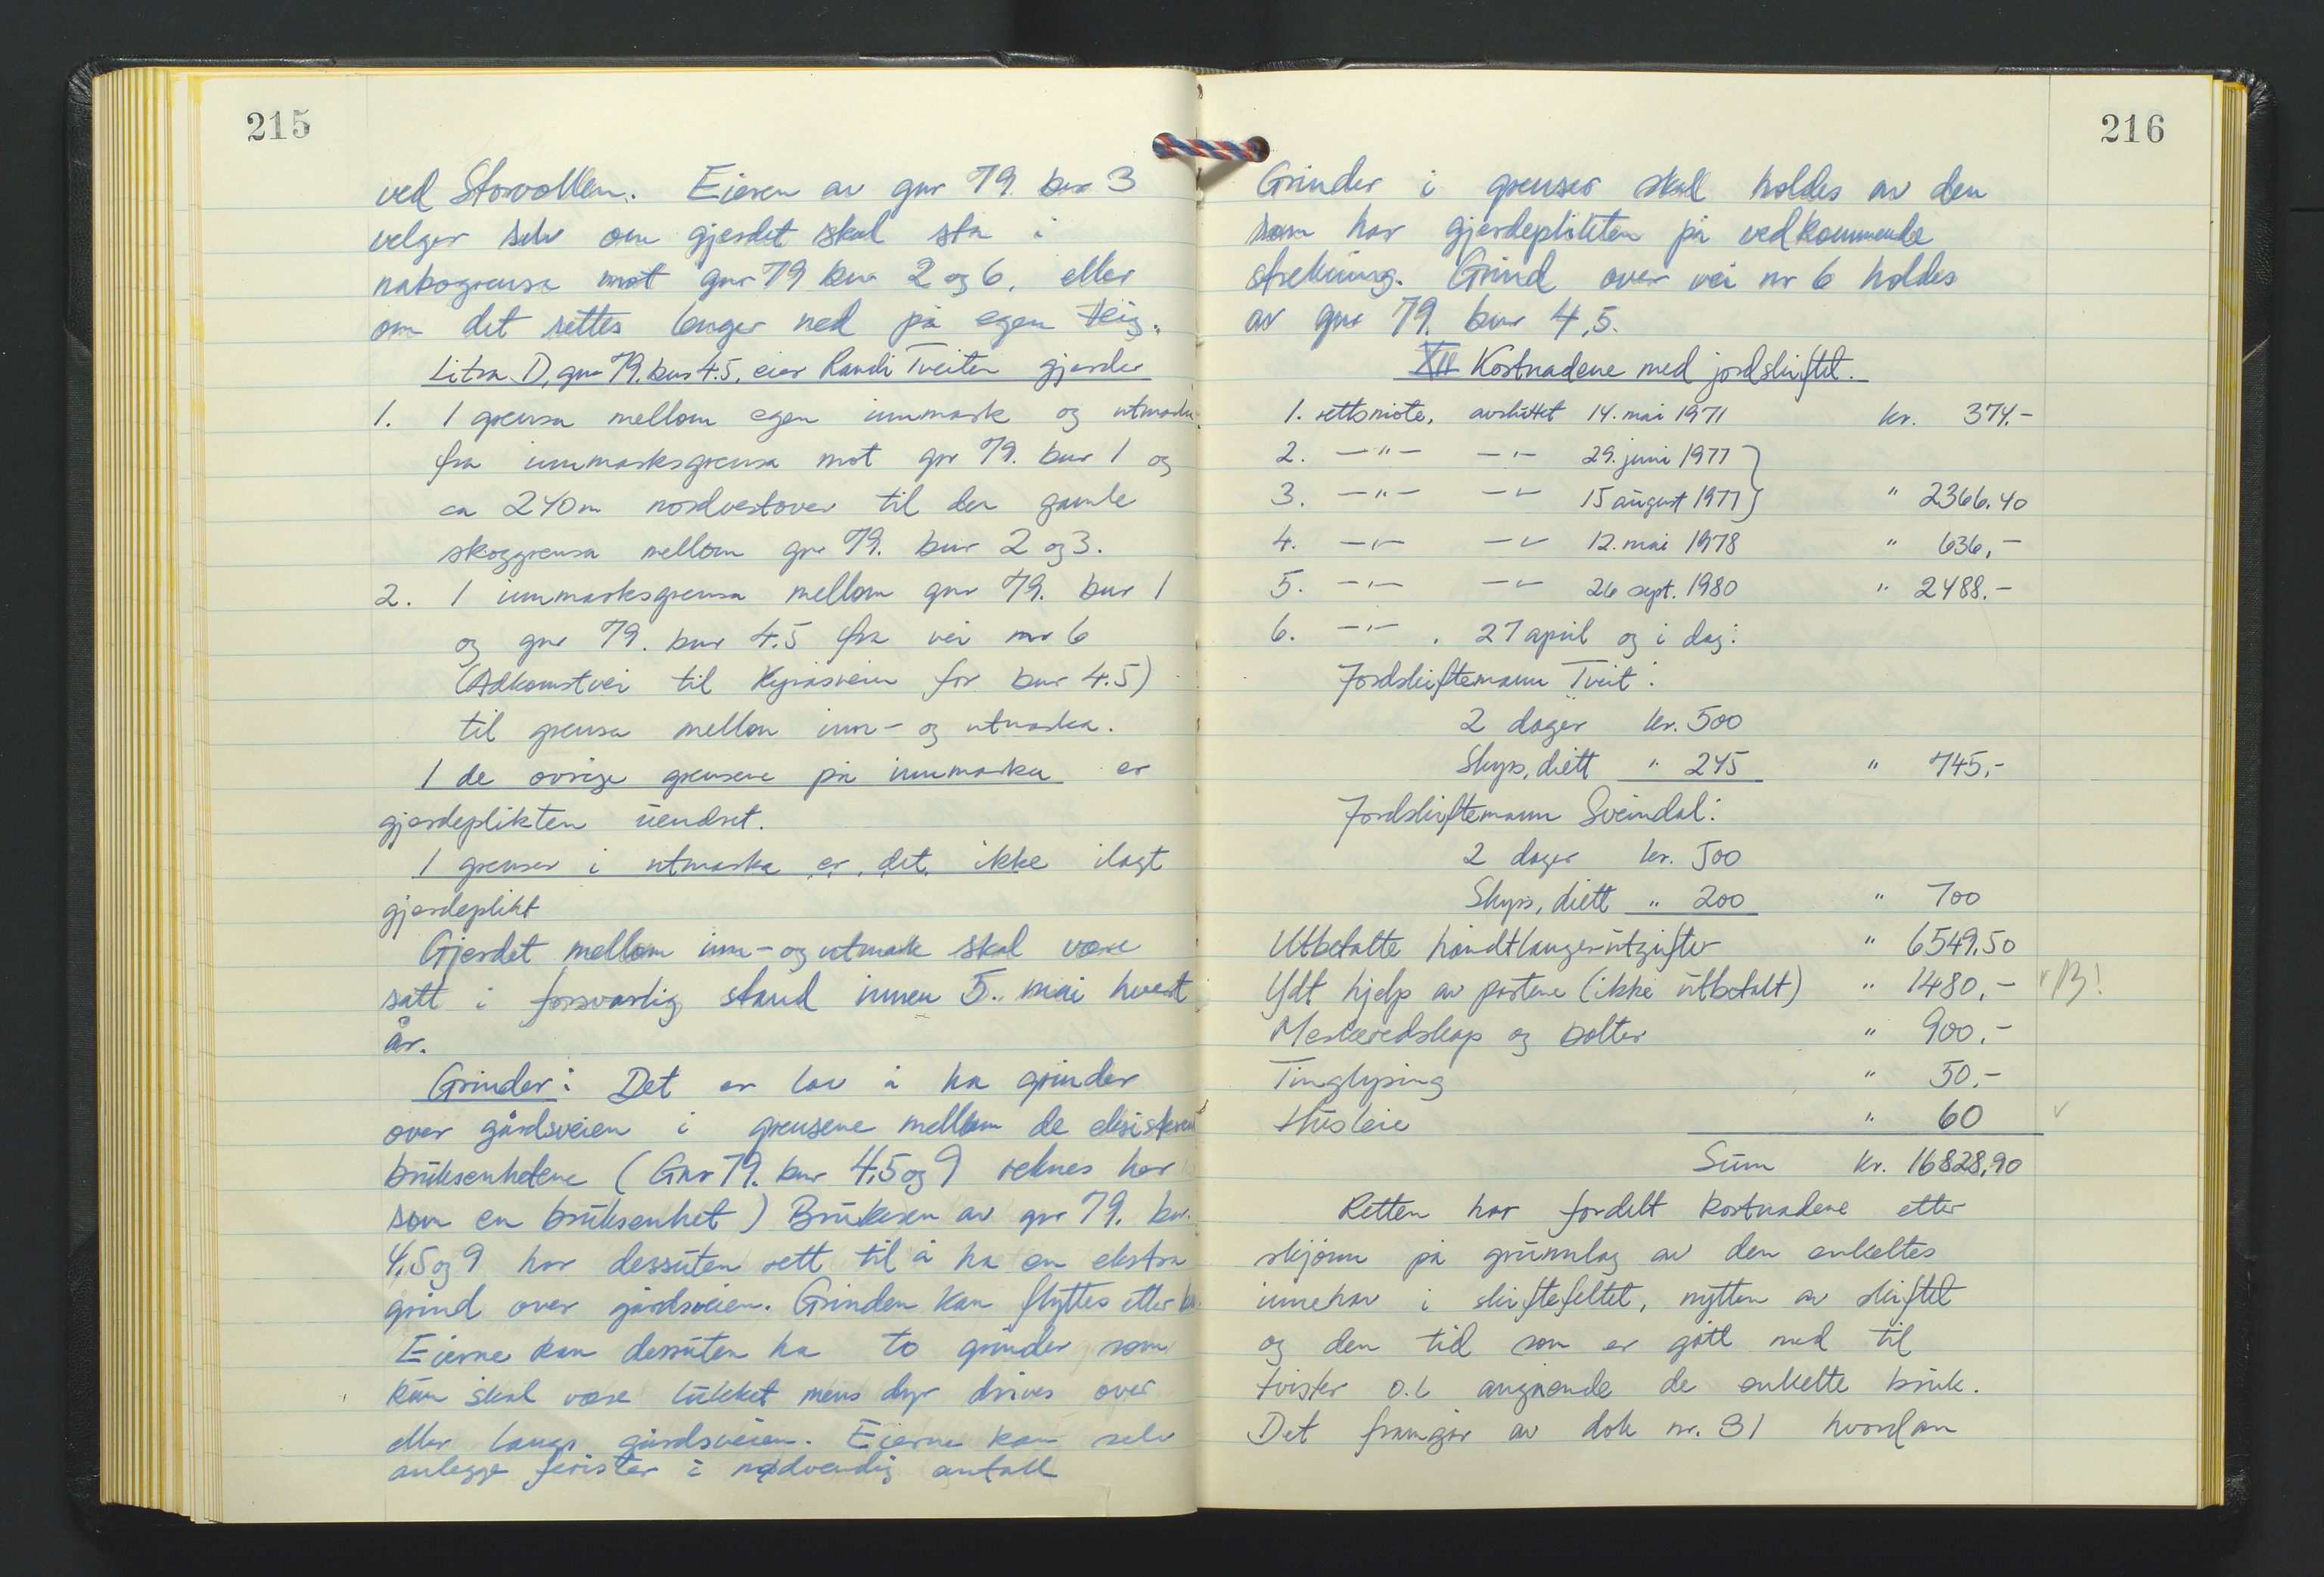 215
ved Storvollen. Eieren av gnr 79. bnr 3
velger selv om gjerdet skal stå i
nabogrensa mot gnr 79 bnr 2 og 6, eller
om det settes lenger ned på egen teig.
Litra D, gnr 79. bnr 4.5, eier Randi Tveiten gjerder
1. I grensa mellom egen innmark og utmarka
fra innmarksgrensa mot gnr 79. bnr 1 og
ca 240 m nordvestover til den gamle
skoggrensa mellom gnr 79. bnr 2 og 3.
2. I innmarksgrensa mellom gnr 79. bnr 1
og gnr 79. bnr 4.5 fra vei nr 6
(Adkomstvei til for bnr 4.5)
til grensa mellom inn- og utmarka.
I de øvrige grensene på innmarka er
gjerdeplikten uendret.
I grenser i utmarka er det ikke ilagt
gjerdeplikt
Gjerdet mellom inn- og utmark skal være
satt i forsvarlig stand innen 5. mai hvert
år.
Grinder: Det er lov å ha grinder
over gårdsveien i grensene mellom de
bruksenhetene (Gnr 79. bnr 4,5 og 9 reknes her
som en bruksenhet) Brukeren av gnr 79. bnr.
4,5 og 9 har dessuten rett til å ha en ekstra
grind over gårdsveien. Grinden kan flyttes etter
Eierne kan dessuten ha to grinder som
kun skal være lukket mens dyr drives over
eller langs gårdsveien. Eierne kan selv
anlegge ferister i nødvendig antall
216
Grinder i grenser skal holdes av den
som har gjerdeplikten på vedkommende
strekning. Grind over vei nr 6 holdes
av gnr 79. bnr 4,5.
XII Kostnadene med jordskiftet.
1. rettsmøte, avsluttet 14. mai 1971 kr. 374,-
2. -"- -"- 29. juni 1977 }
3. -"- -"- 15 august 1977 } " 2366.40
4. -"- -"- 12. mai 1978 " 636,-
5. -"- -"- 26 sept. 1980 " 2488.-
6. -"- . 27 april og i dag:
Jordskiftemann Tveit:
2 dager kr. 500
Skyss, diett " 245 " 745,-
Jordskiftemann Sveindal:
2 dager kr. 500
Skyss, diett " 200 " 700
Utbetalte håndtlangerutgifter " 6549.50
Ydt hjelp av partene (ikke utbetalt) " 1480,-
Merkeredskap og bolter " 900,-
Tinglysing " 50.-
Husleie " 60
Sum kr. 16828,90
Retten har fordelt kostnadene etter
skjønn på grunnlag av den enkeltes
innehav i skiftefeltet, nytten av skiftet
og den tid som er gått med til
tvister o.l angående de enkelte bruk.
Det framgår av dok nr. 31 hvordan